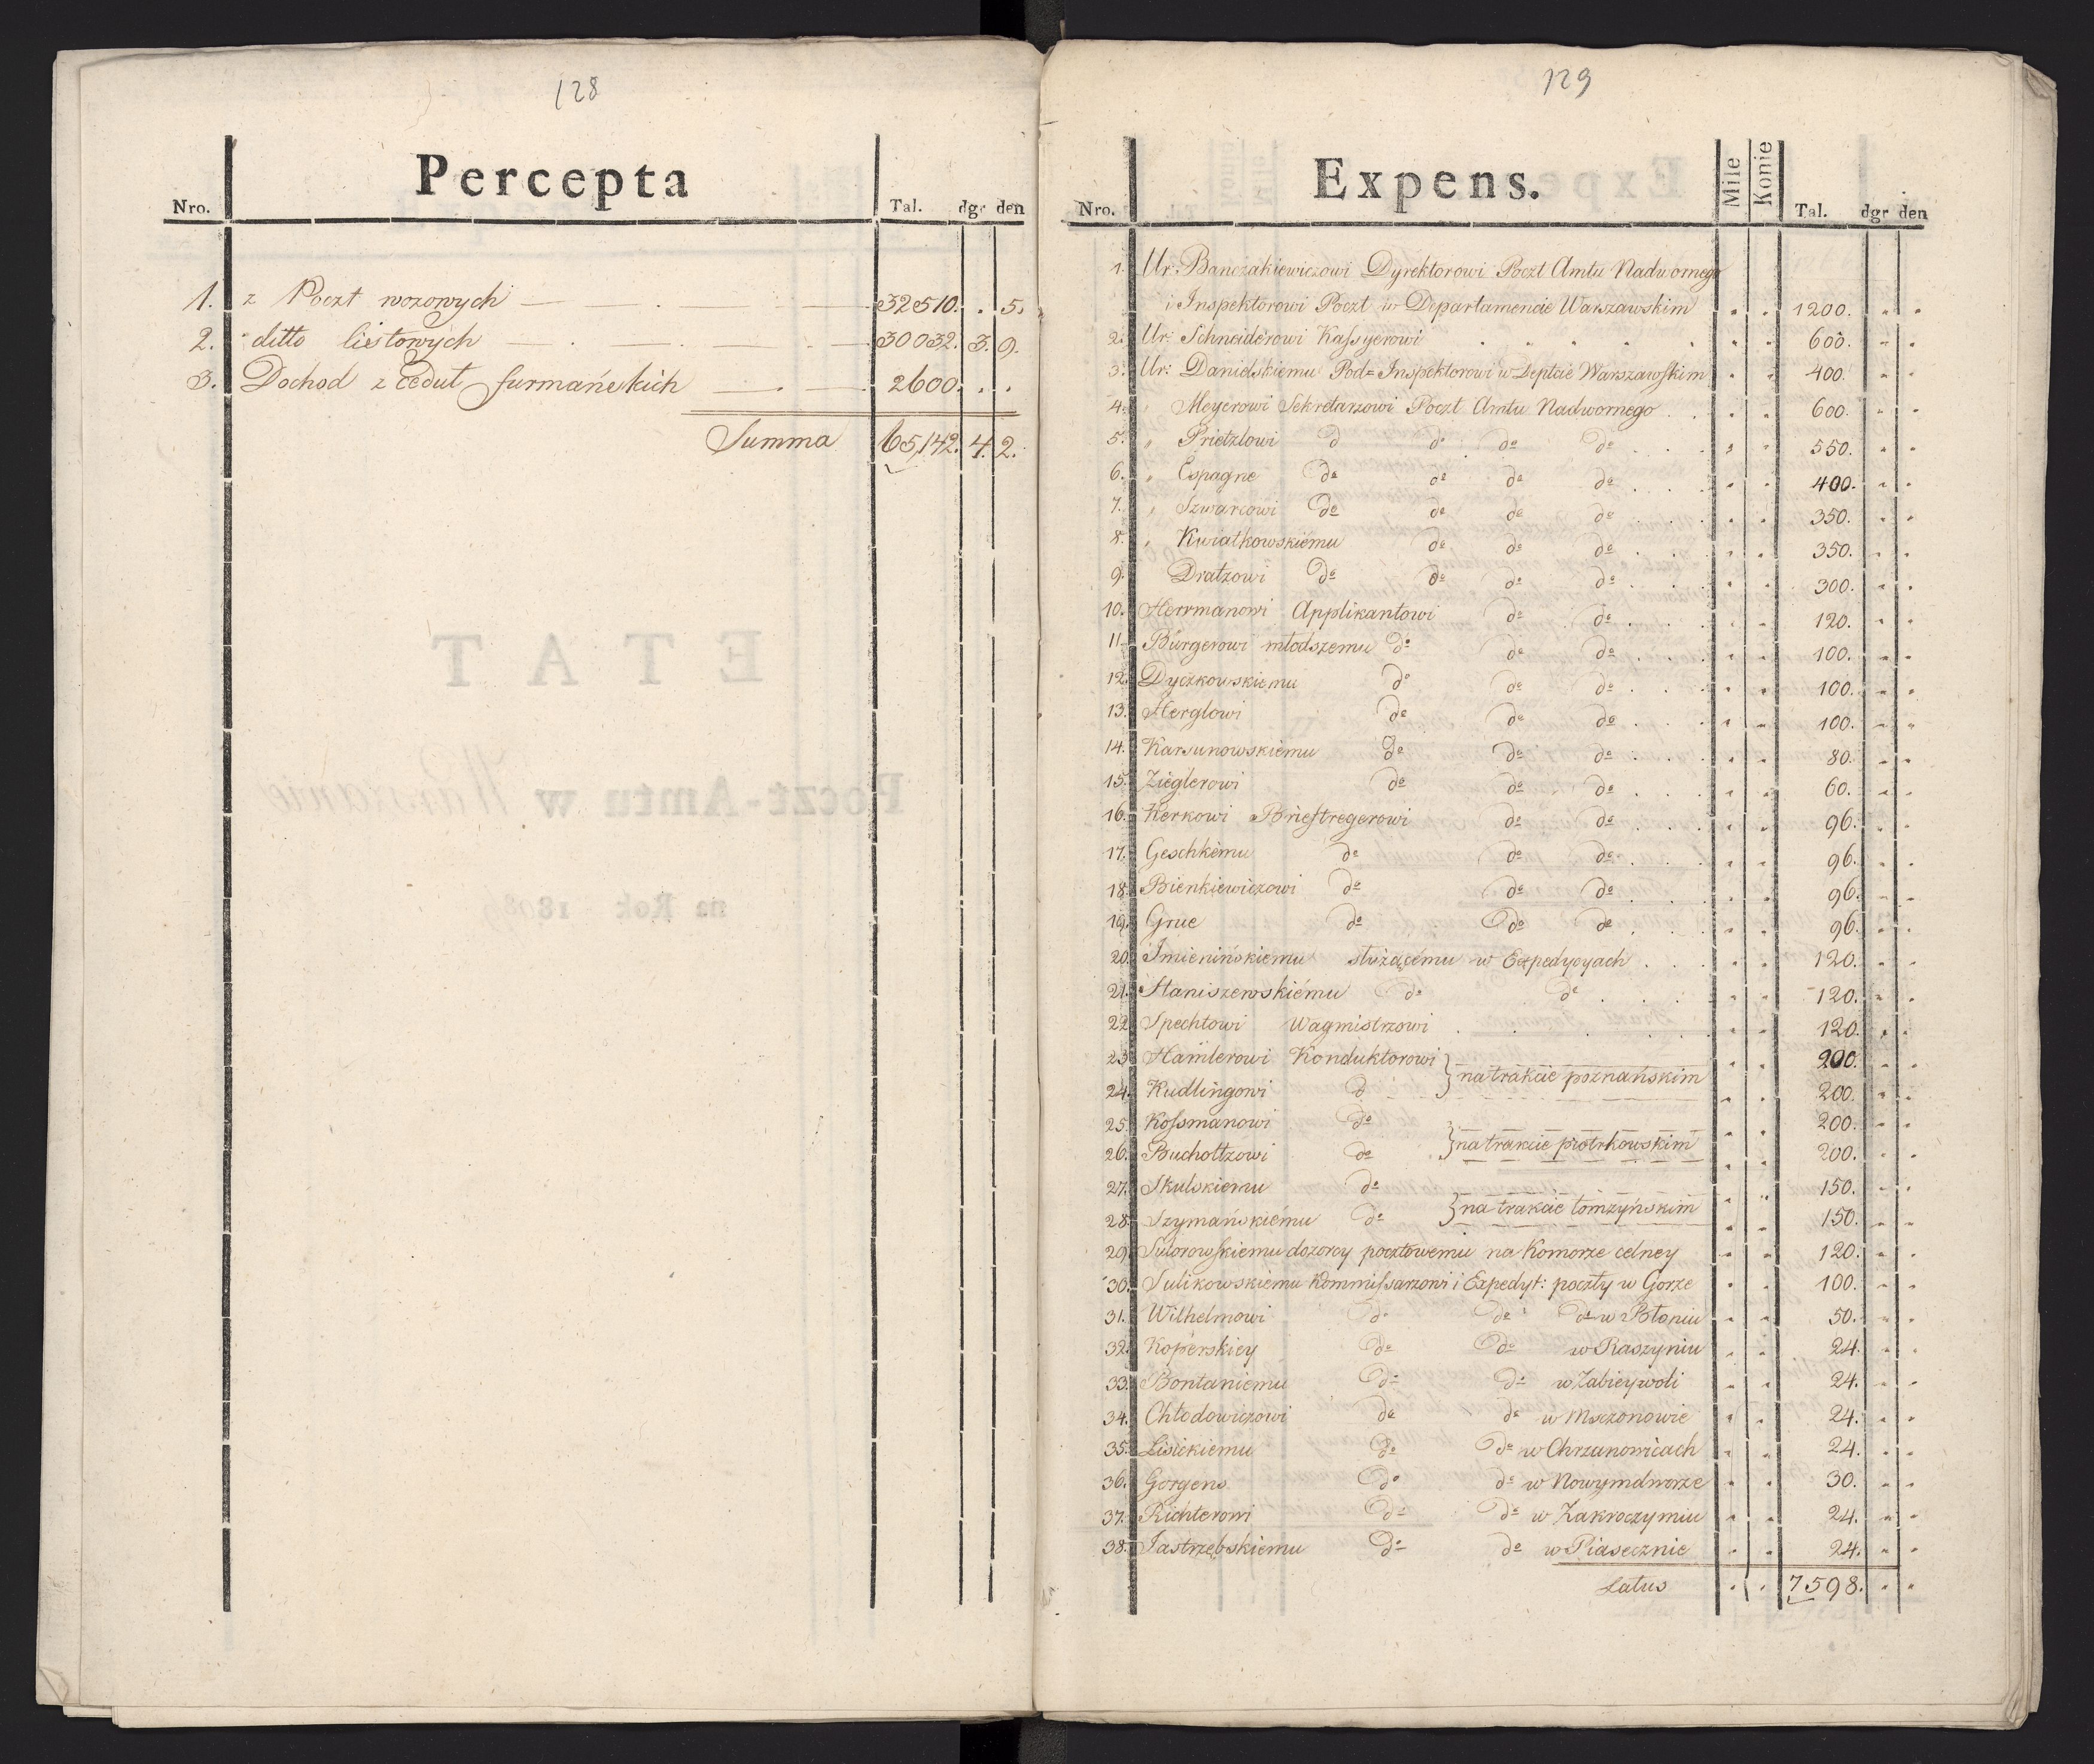 128
Percepta
Nro. Tal. dgr den
1. z Poczt wozowych 32510. . 5.
2. ditto listowych 30032. 3. 9.
3. Dochod z Ceduł furmańskich 2600. . .
Summa 65,142. 4. 2.
129
Expens.
Nro. Mile Konie Tal. dgr den
1. Ur: Banczakiewiczowi Dyrektorowi Poczt Amtu Nadwornego
i Inspektorowi Poczt w Departamencie Warszawskim 1200.
2. Ur: Schneiderowi Kassyerowi 600.
3. Ur: Danielskiemu Pod=Inspektorowi w Deptcie Warszawskim 400.
4. " Meyerowi Sekretarzowi Poczt Amtu Nadwornego 600.
5. " Prietzlowi d do do do 550.
6. " Espagne do do do do 400.
7. " Szwarcowi do do do do 350.
8. " Kwiatkowskiému do do do 350.
9. Dratzowi do do do do 300.
10. Herrmanowi Applikantowi do do 120.
11. Bürgerowi młodszemu do do do 100.
12. Dyczkowskiemu do do do 100.
13. Herglowi do do do 100.
14. Karsunowskiému do do do 80.
15. Zieglerowi do do do 60.
16. Kerkowi Brieftregerowi do do 96.
17. Geschkému do do do 96.
18. Bienkiewiczowi do do do 96.
19. Grue do do do 96.
20. Imienińskiemu służącému w Expedycyach 120.
21. Staniszewskiému do do 120.
22. Spechtowi Wagmistrzowi 120.
23. Hamlerowi Konduktorowi 200.
} na trakcie poznańskim
24. Kudlingowi d 200.
25. Kossmanowi do 200.
} na trakcie piotrkowskim
26. Bucholtzowi do 200.
27. Skulskiemu do 150.
} na trakcie łomzyńskim
28. Szymańskiému do 150.
29. Sulorowskiemu dozorcy pocztowemu na Komorze celney 120.
30. Sulikowskiemu Kommissarzowi i Expedyt: poczty w Gorze 100.
31. Wilhelmowi do do do w Błoniu 50.
32. Koperskiey do do w Raszyniu 24.
33. Bontaniemu do do w Zabieywoli 24.
34. Chłodowiczowi do do w Mszczonowie 24.
35. Lisickiemu do do w Chrzanowicach 24.
36. Gorgens do do w Nowymdworze 30.
37. Richterowi do do w Zakroczymiu 24.
38. Jastrzębskiemu do do w Piasecznie 24.
Latus 7598.